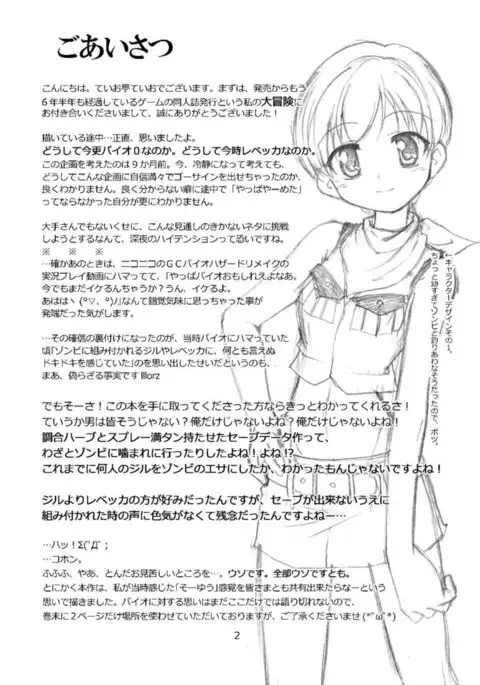 ごあいさつ
こんにちは。ていお亭ていおでございます。まずは、発売からもう
6年半年も経過しているゲームの同人誌発行という私の大冒険に
お付き合いくださいまして、誠にありがとうございました！
描いている途中…正直、思いましたよ。
どうして今更バイオ０なのか。どうして今時レベッカなのか。
この企画を考えたのは９か月前。今、冷静になって考えても、
どうしてこんな企画に自信満々でゴーサインを出せちゃったのか、
良くわかりません。良く分からない癖に途中で「やっぱやーめた」
ってならなかった自分が更にわかりません。
大手さんでもないくせに、こんな見通しのきかないネタに挑戦
しようとするなんて、深夜のハイテンションって恐いですね。
※　※　※
…確かあのときは、ニコニコのＧＣバイオハザードリメイクの
実況プレイ動画にハマってて、「やっぱバイオおもしれえよなあ。
今でもまだイケるんちゃうか？うん、イケるよ。
あははヽ(°▽、°)ノ」なんて錯覚気味に思っちゃった事が
発端だった気がします。
…その確信の裏付けになったのが、当時バイオにハマっていた
頃「ゾンビに組み付かれるジルやレベッカに、何とも言えぬ
ドキドキを感じていた」のを思い出したせいだというのも、
まあ、偽らざる事実です lllorz
でもそーさ！この本を手に取ってくださった方ならきっとわかってくれるさ！
ていうか男は皆そうじゃない？俺だけじゃないよね？俺だけじゃないよね！
調合ハーブとスプレー満タン持たせたセーブデータ作って、
わざとゾンビに噛まれに行ったりしたよね！よね!？
これまでに何人のジルをゾンビのエサにしたか、わかったもんじゃないですよね！
ジルよりレベッカの方が好みだったんですが、セーブが出来ないうえに
組み付かれた時の声に色気がなくて残念だったんですよねー…
…ハッ！Σ(ﾟДﾟ；
…コホン。
ふふふ、やあ、とんだお見苦しいところを…。ウソです。全部ウソですとも。
とにかく本作は、私が当時感じた「そーゆう」感覚を皆さまとも共有出来たらなーという
思いで描きました。バイオに対する思いはまだここだけでは語り切れないので、
巻末に２ページだけ場所を使わせていただいておりますが、ご了承くださいませ (*ﾟωﾟ*)
←キャラクターデザインその一。
ちょっと幼すぎてゾンビと釣りあわなそうだったので、ボツ。
2